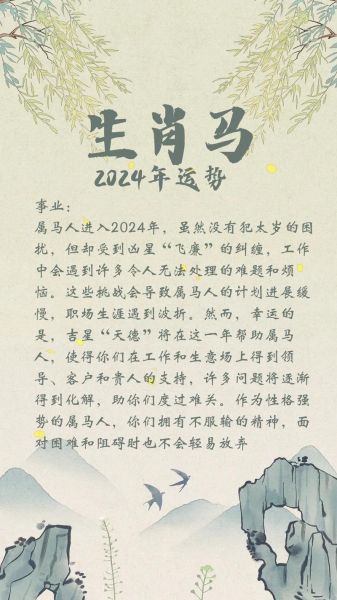 生肖马
2024年运势
事业：
属马人进入2024年，虽然没有犯太岁的困
扰，但却受到凶星“飞廉”的纠缠，工作
中会遇到许多令人无法处理的难题和烦
恼。这些挑战会导致属马人的计划进展缓
慢，职场生涯遇到波折。然而，幸运的
是，吉星“天德”将在这一年帮助属马
人，使得你们在工作和生意场上得到领
导、客户和贵人的支持，许多问题将逐渐
得到化解，助你们度过难关。作为性格强
势的属马人，你们拥有不服输的精神，面
对困难和阻碍时也不会轻易放弃